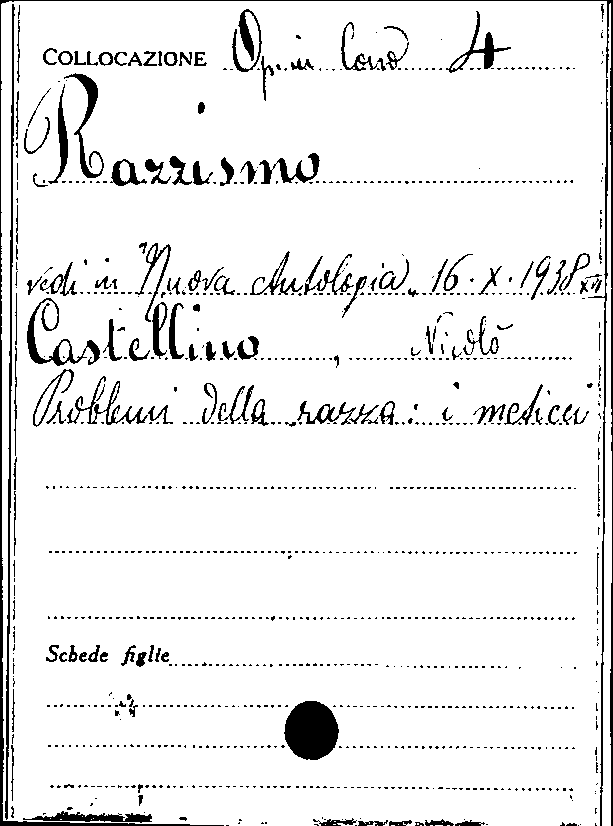 COLLOCAZIONE Op. in Cons 4
Razzismo
vedi in "Nuova Antologia" 16.X.1938 XVI
Castellino, Nicolò
Problemi della razza: i meticci
Schede figlie